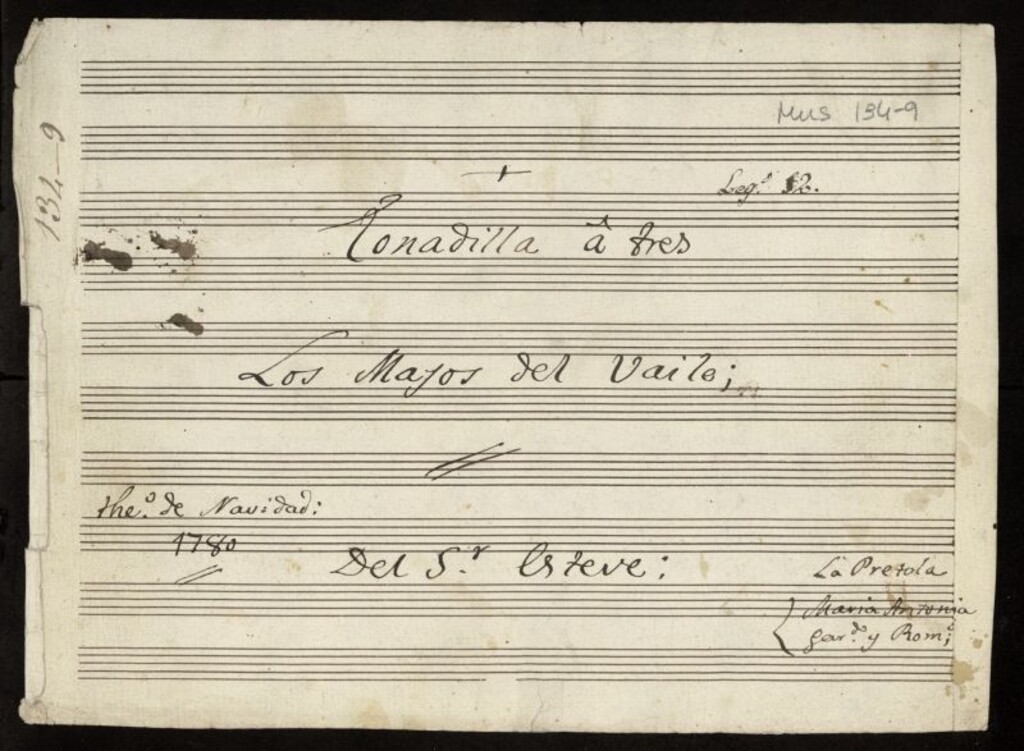 Mus 134-9
134-9
Leg.º 12.
Tonadilla â tres
Los Majos del Vaile;
the.º de Navidad:
1780
Del S.r Esteve:
La Pretola
Maria Antonia
gar.do y Rom.º;